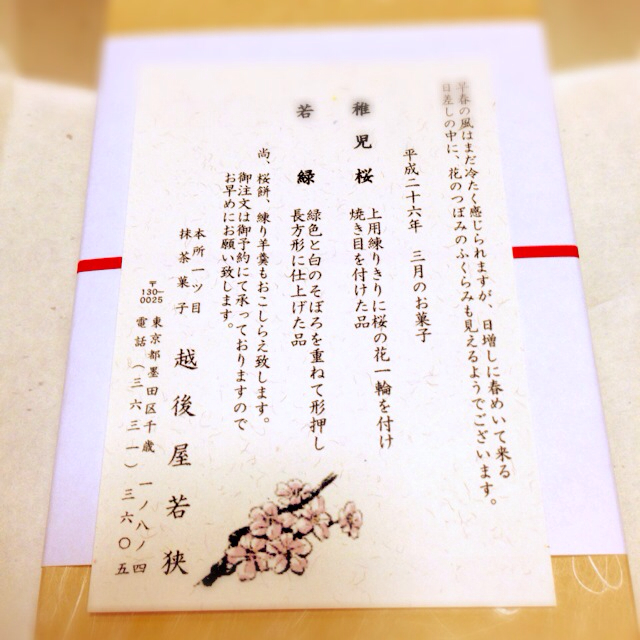 早春の風はまだ冷たく感じられますが、日増しに春めいて来る
日差しの中に、花のつぼみのふくらみも見えるようでございます。
平成二十六年　三月のお菓子
稚児桜　上用練りきりに桜の花一輪を付け
焼き目を付けた品
若　緑　緑色と白のそぼろを重ねて形押し
長方形に仕上げた品
尚、桜餅、練り羊羹もおこしらえ致します。
御注文は御予約にて承っておりますので
お早めにお願い致します。
本所一ツ目
抹茶菓子
越後屋若狭
〒130-0025
東京都墨田区千歳　一ノ八ノ四
電話（三六三一）三六〇五